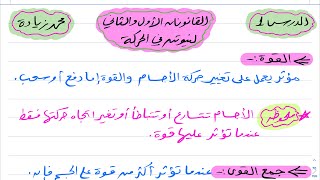 الدرس 1
القانونان الأول والثاني
لنيوتن في الحركة
محمد زيادة
القوة :-
مؤثر يعمل على تغيير حركة الأجسام والقوة إما دفع أو سحب.
ملحوظة الأجسام تتسارع أو تتباطأ أو تغير اتجاه حركتها فقط
عندما تؤثر عليها قوة.
جمع القوى :- عندما تؤثر أكثر من قوة على الجسم فإنه